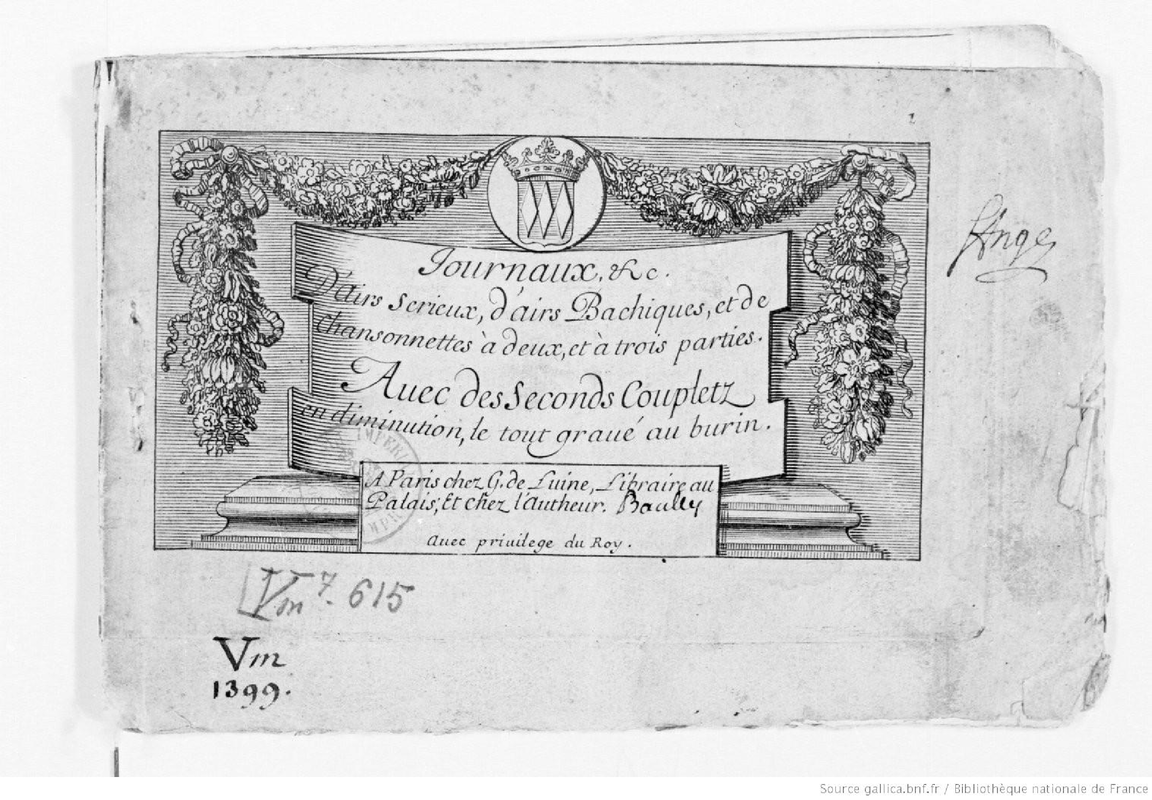 Journaux, &c.
D'airs Serieux, d'airs Bachiques, et de
Chansonnettes à deux, et à trois parties.
Auec des Seconds Coupletz
en diminution, le tout graué au burin.
A Paris chez G. de Luine, Libraire au
Palais, Et chez l'Autheur. Baully
Auec priuilege du Roy.
Vm 7. 615
Vm
1399.
Source gallica.bnf.fr / Bibliothèque nationale de France